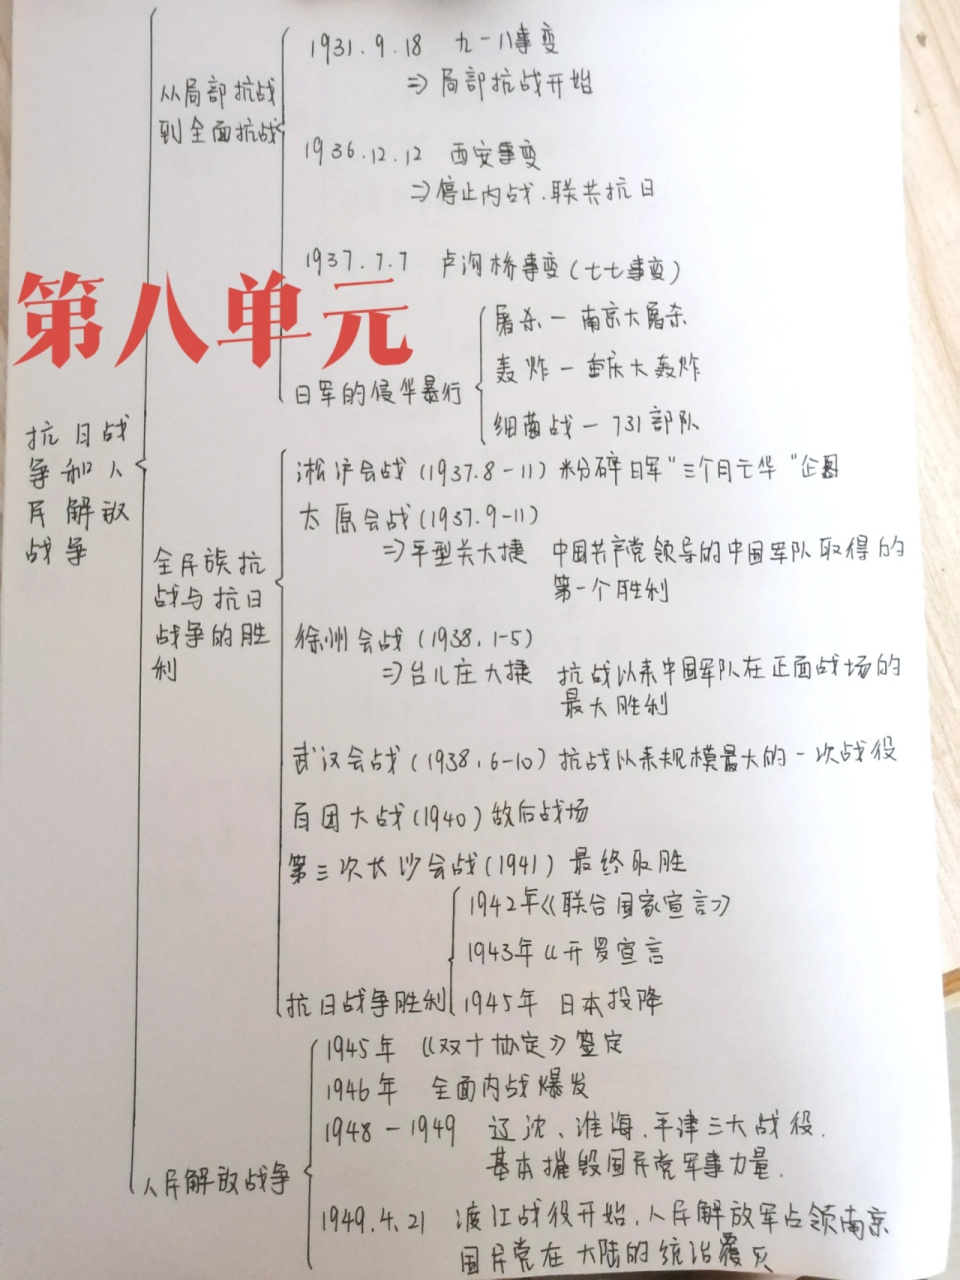 从局部抗战
到全面抗战
1931.9.18 九一八事变
⇒局部抗战开始
1936.12.12 西安事变
⇒停止内战.联共抗日
1937.7.7 卢沟桥事变(七七事变)
第八单元
日军的侵华暴行
屠杀—南京大屠杀
轰炸—重庆大轰炸
细菌战—731部队
抗日战
争和人
民解放
战争
全民族抗
战与抗日
战争的胜
利
淞沪会战(1937.8-11)粉碎日军"三个月亡华"企图
太原会战(1937.9-11)
⇒平型关大捷 中国共产党领导的中国军队取得的
第一个胜利
徐州会战(1938.1-5)
⇒台儿庄大捷 抗战以来中国军队在正面战场的
最大胜利
武汉会战(1938.6-10)抗战以来规模最大的一次战役
百团大战(1940)敌后战场
第三次长沙会战(1941)最终取胜
抗日战争胜利
1942年《联合国家宣言》
1943年《开罗宣言
1945年 日本投降
人民解放战争
1945年 《双十协定》签定
1946年 全面内战爆发
1948-1949 辽沈、淮海、平津三大战役.
基本摧毁国民党军事力量.
1949.4.21 渡江战役开始,人民解放军占领南京
国民党在大陆的统治覆灭